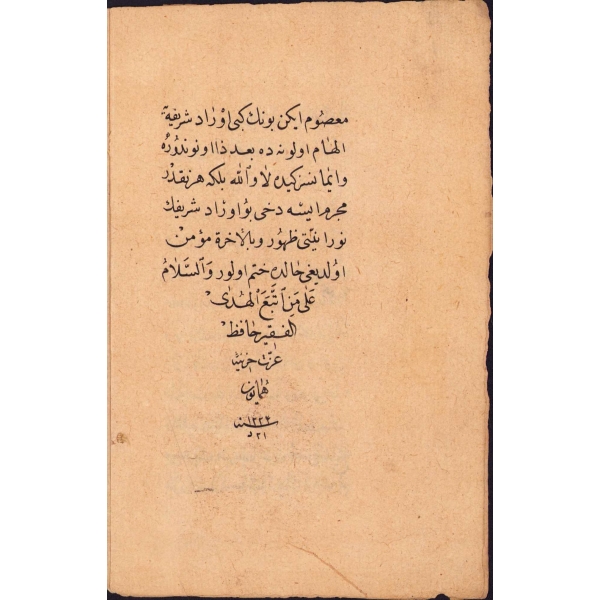 معصوم ایكن بونك كبی اوراد شریفه
الهام اولونه ده بعد ذا اونوندوره
وایمانسز كیده لا والله بلكه هر نقدر
مجرم ایسه دخی بو اوراد شریفك
نورانیتی ظهور وبالآخرة مؤمن
اولدیغی حالده ختم اولور والسلام
علی من اتبع الهدی
الفقیر حافظ
عزت خزینهٔ
همایون
سنه ١٢٣٤
٢١